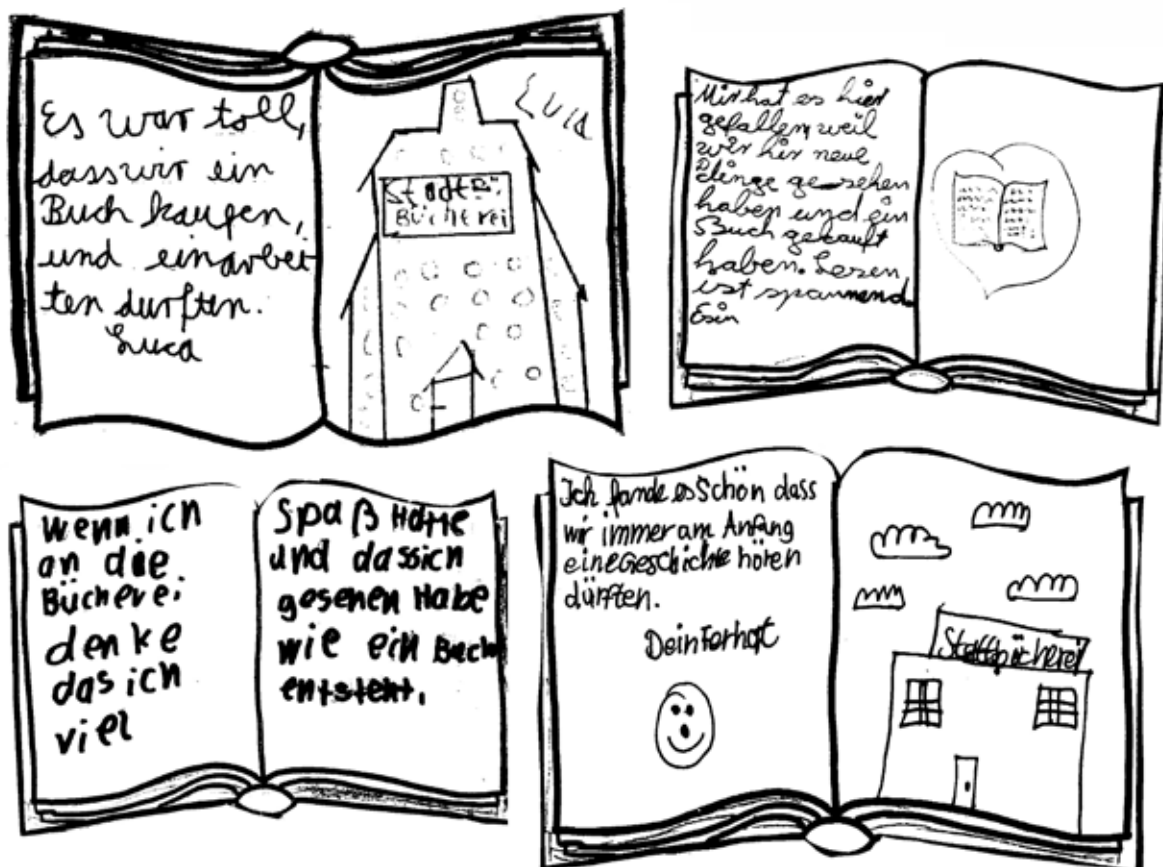 Es war toll,
dass wir ein
Buch kaufen,
und einarbei
ten durften.
Luca
Stadt
Bücherei
Mir hat es hier
gefallen, weil
wir hir neue
Dinge gesehen
haben und ein
Buch gekauft
haben. Lesen
ist spannend
Esin
Wenn ich
an die
Bücherei
denke
das ich
viel
Spaß Hatte
und dassich
gesehen Habe
wie ein Buch
entsteht.
Ich fande es Schön dass
wir immer am Anfang
eine Geschichte hören
dürften.
Dein Ferhat
Stattbücherei